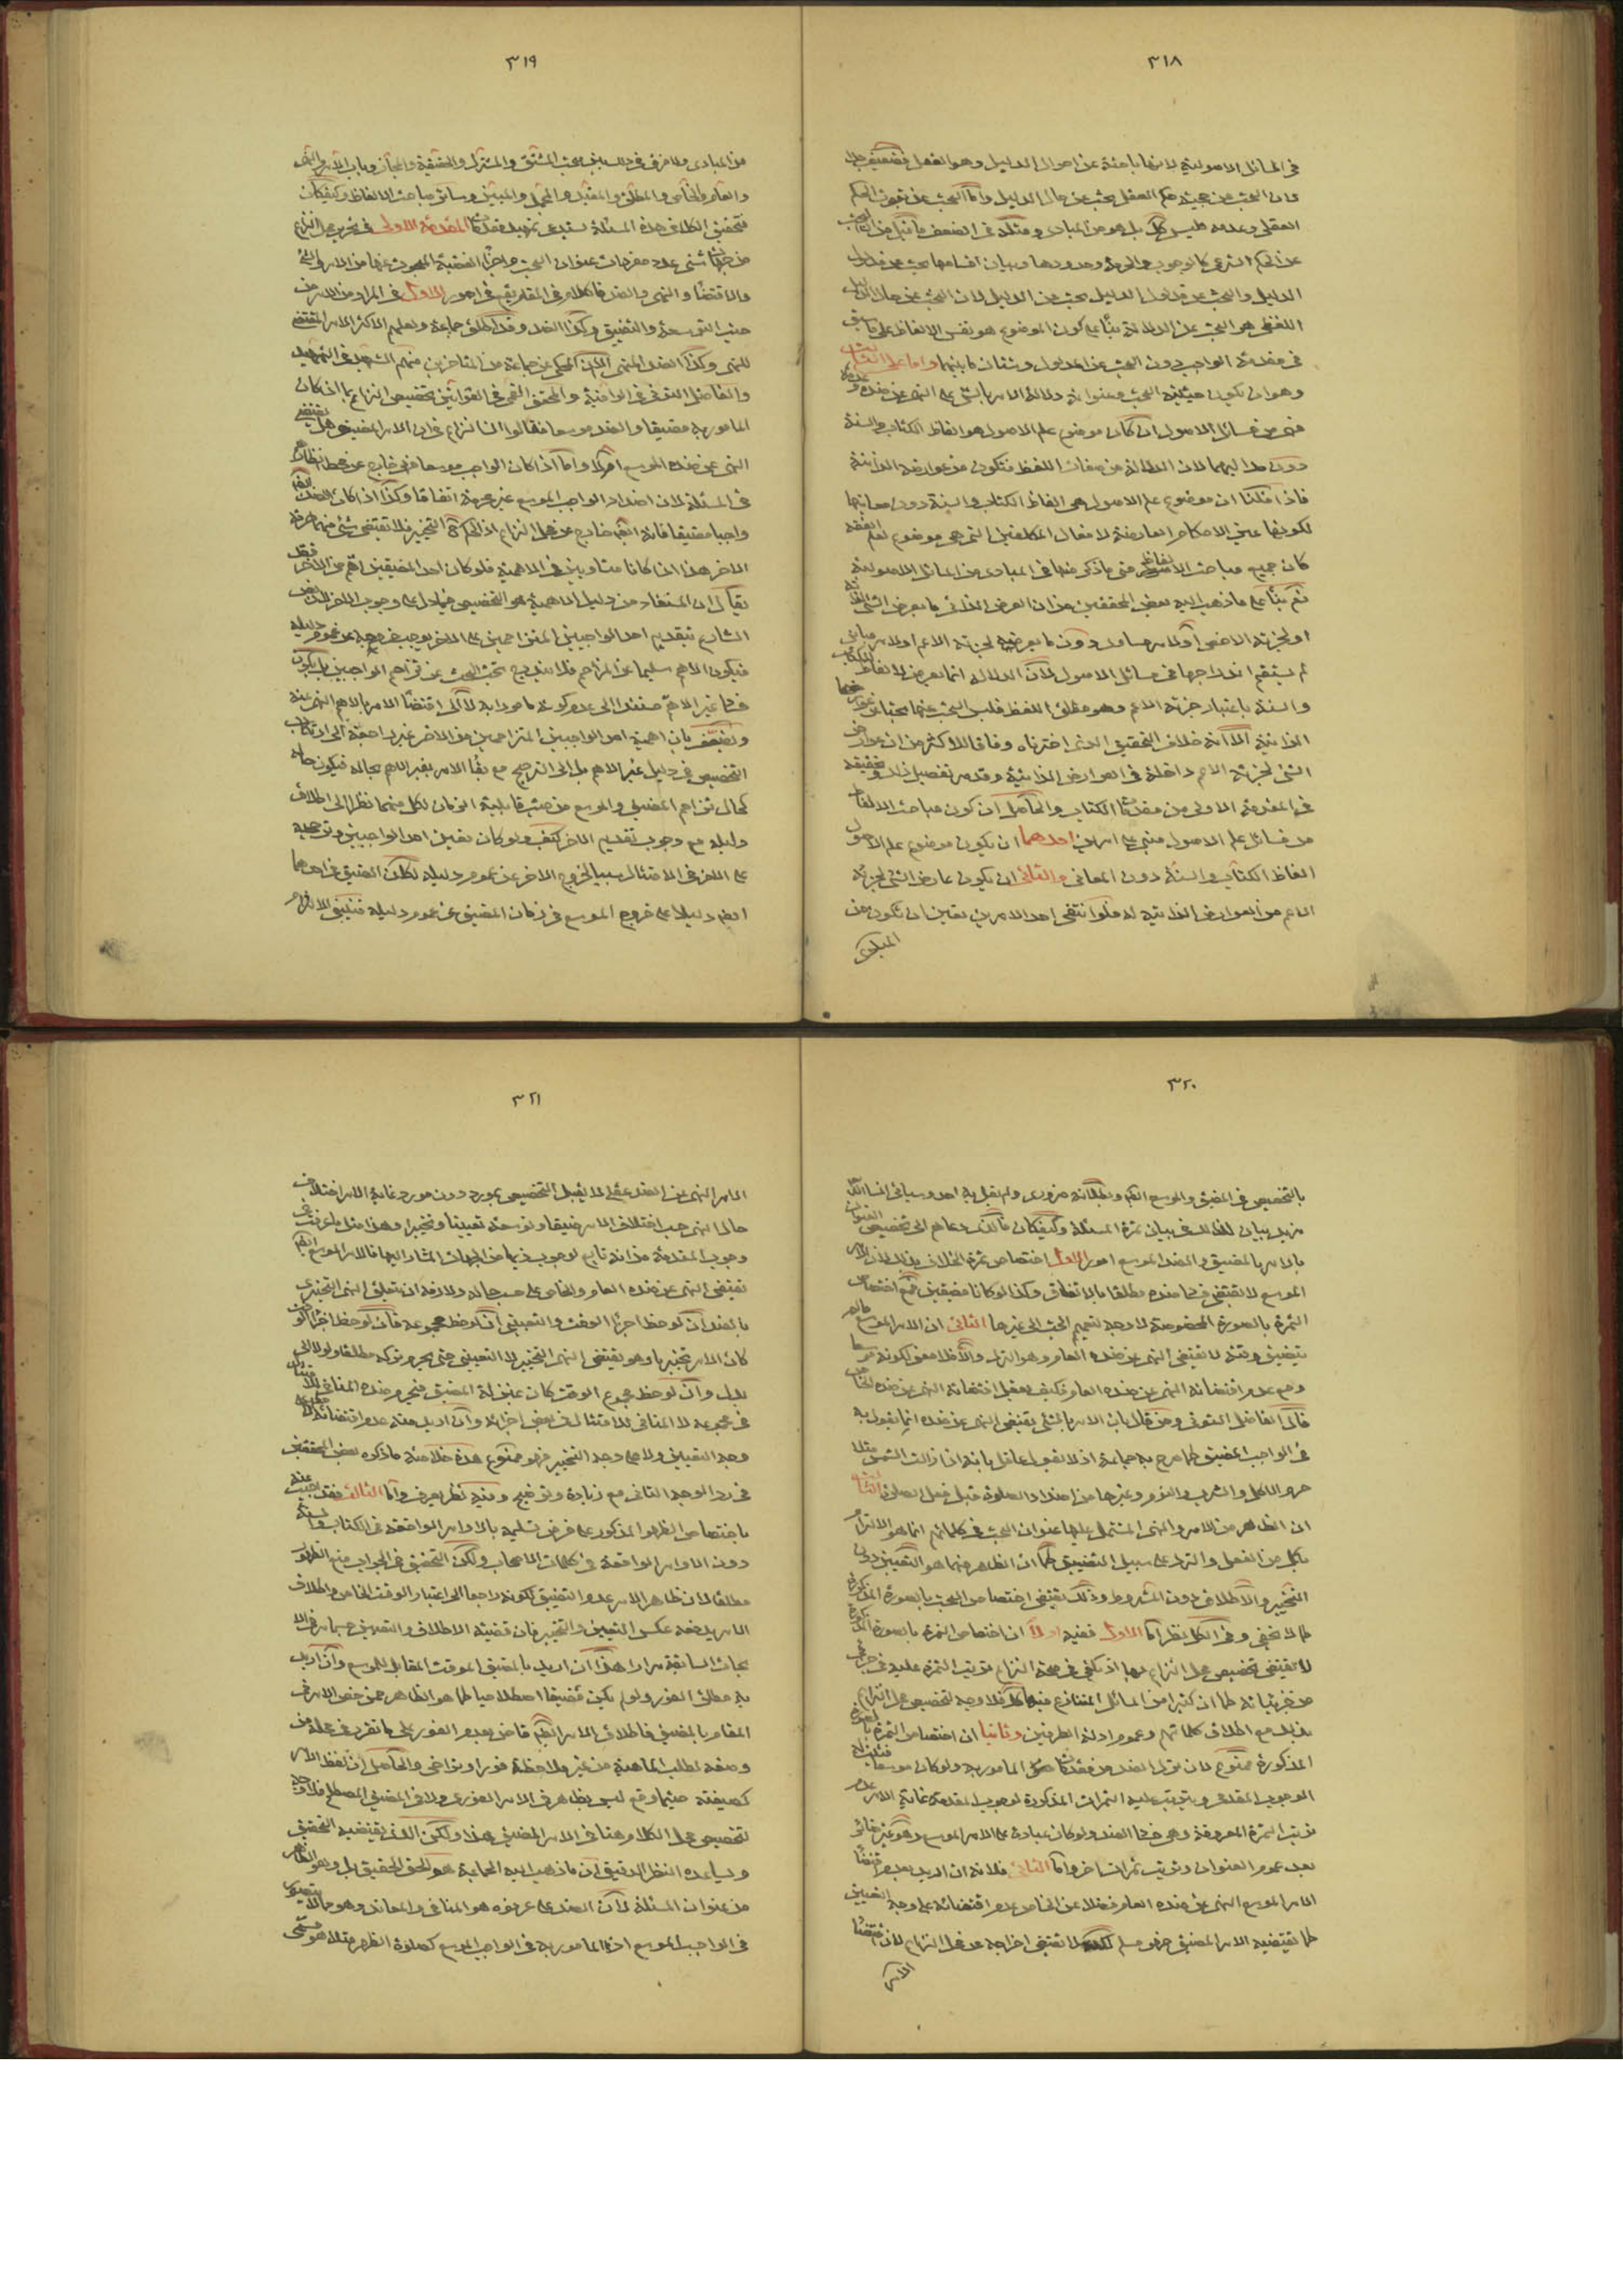 ٣١٨
في المسائل الاصولية لانها باحثة عن احوال الدليل وهو العقل فضعيف جدا
لان البحث عن حجية حكم العقل بحث عن حال الدليل واما البحث عن ثبوت الحكم
العقلي وعدمه فليس كك بل هو من المبادى ومثله في الضعف ما قيل من ان البحث
عن الحكم الشرعي كالوجوب والحرمة وحدودها وبيان اقسامها بحث عن مدلول
الدليل والبحث عن مدلول الدليل بحث عن الدليل لان البحث عن حال الدليل
اللفظي هو البحث عن الدلالة بناء على كون الموضوع هو نفس الالفاظ على ما سبق
في مقدمة الواجب دون البحث عن المدلول وشتان ما بينهما واما على الثالث
وهو ان يكون حيثية البحث وعنوانه دلالة الامر بالشئ على النهي عن ضده وعدمه
فهي من مسائل الاصول ان كان موضوع علم الاصول هو الفاظ الكتاب والسنة
دون مداليهما لان الدلالة من صفات اللفظ فتكون من عوارضه الذاتية
فاذا قلنا ان موضوع علم الاصول هي الفاظ الكتاب والسنة دون معانيها
لكونها عين الاحكام العارضة لافعال المكلفين التي هي موضوع لعلم الفقه
كان جميع مباحث الالفاظ حتى ما ذكر منها في المبادى من المسائل الاصولية
نعم بناء على ما ذهب اليه بعض المحققين من ان العرض الذاتي ما يعرض الشئ لذاته
او لجزئه الاخص او لامر مساو دون ما يعرضه لجزئه الاعم او لامر مباين
لم يستقم اندراجها في مسائل الاصول لان الدلالة انما يعرض لالفاظ الكتاب
والسنة باعتبار جزئه الاعم وهو مطلق اللفظ فليس البحث عنها بحثا عن عوارضها
الذاتية الا انه خلاف التحقيق الذي اخترناه وفاقا للاكثر من ان عوارض
الشئ لجزئه الاعم داخلة في العوارض الذاتية وقد مر تفصيل ذلك وتحقيقه
في المقدمة الاولى من مقدمات الكتاب والحاصل ان كون مباحث الالفاظ
من مسائل علم الاصول مبني على امرين احدهما ان يكون موضوع علم الاصول
الفاظ الكتاب والسنة دون المعاني والثاني ان يكون عارض الشئ لجزئه
الاعم من العوارض الذاتية له فلو انتفى احد الامرين تعين ان يكون من
المبادى
٣١٩
من المبادى ولا فرق في ذلك بين بحث المشتق والمشترك والحقيقة والمجاز وباب الامر والنهي
والعام والخاص والمطلق والمقيد والمجمل والمبين وسائر مباحث الالفاظ وكيف كان
فتحقيق الكلام في هذه المسئلة يستدعي تمهيد مقدمات المقدمة الاولى في تحرير محل النزاع
من جهات شتى على حد مفردات عنوان البحث واجزاء القضية المبحوث عنها من الامر والشئ
والاقتضاء والنهي والضد فالكلام في المقام يقع في امور الاول في المراد من الامر من
حيث التوسعة والتضييق وكذا الضد وقد اطلق جماعة ولعلهم الاكثر الامر المقتضي
للنهي وكذا الضد المنهي الا ان المحكى عن جماعة من المتاخرين منهم الشهيد في التمهيد
والفاضل التوني في الوافية والمحقق القمي في القوانين تخصيص النزاع بما اذا كان
المامور به مضيقا والضد موسعا فقالوا ان النزاع في ان الامر المضيق هل يقتضي
النهي عن ضده الموسع ام لا واما اذا كان الواجب موسعا فهي خارج عن محط انظارهم
في المسئلة لان اضداد الواجب الموسع غير محرمة اتفاقا وكذا اذا كان الضد ايضا
واجبا مضيقا فانه ايضا خارج عن محل النزاع اذ الحكم فيه التخيير فلا تقتضي شئ منهما حرمة
الاخر هذا اذا كانا متساويين في الاهمية فلو كان احد المضيقين اهم من الاخر فقد
يقال ان المستفاد من دليل الاهمية هو التخصيص فيما دل على وجوب الاخر لان فرض
الشارع بتقديم احد الواجبين المتزاحمين على الاخر يوجب خروجه عن عموم دليله
فيكون الاهم سليما عن المزاحم فلا يندرج تحت البحث عن تزاحم الواجبين بل يكون
فساد غير الاهم مستندا الى عدم كونه مامورا به لا الى اقتضاء الامر بالاهم النهي عنه
ويضعف بان اهمية احد الواجبين المتزاحمين من الاخر غير راجعة الى ارتكاب
التخصيص في دليل غير الاهم بل الى الترجيح مع بقاء الامر بغير الاهم بحاله فيكون حاله
كحال تزاحم المضيق والموسع من حيث قابلية الزمان لكل منهما نظرا الى اطلاق
دليله مع وجوب تقديم الاخر كيف ولو كان تعيين احد الواجبين وترجيحه
على الاخر في الامتثال سببا لخروج الاخر عن عموم دليله لكان الضيق في احدهما
ايضا دليلا على خروج الموسع في زمان المضيق عن عموم دليله فينبغي الالتزام
٣٢٠
بالتخصيص في المضيق والموسع ايضا وبطلانه ضروري ولم يقل به احد وسيأتي انشاء الله
مزيد بيان لذلك في بيان ثمرة المسئلة وكيف كان فالذي دعاهم الى تخصيص العنوان
بالامر بالمضيق والضد الموسع امور الاول اختصاص ثمرة الخلاف بذلك لان الامر
الموسع لا يقتضي فساد ضده مطلقا بالاتفاق وكذا لو كانا مضيقين فمع اختصاص
الثمرة بالصورة المخصوصة لا وجه لتعميم البحث الى غيرها الثاني ان الامر الموسع ما لم
يتضيق وقته لا يقتضي النهي عن ضده العام وهو الترك والا فلا معنى لكونه موسعا
ومع عدم اقتضائه النهي عن ضده العام فكيف يعقل اقتضائه النهي عن ضده الخاص
قال الفاضل التوني ومن قال بان الامر بالشئ يقتضي النهي عن ضده انما يقول به
في الواجب المضيق كما صرح به جماعة اذ لا يقول عاقل بانه اذا زالت الشمس مثلا
حرم الاكل والشرب والنوم وغيرها من اضداد الصلوة قبل فعل الصلوة الثالث
ان الظاهر من الامر والنهي المشتمل عليها عنوان البحث في كلماتهم انما هو الالزام
بكل من الفعل والترك على سبيل التضييق كما ان الظاهر منهما هو التعيين دون
التخيير والاطلاق دون المشروط وذلك يقتضي اختصاص البحث بالصورة المذكورة
كما لا يخفى وفي الكل نظر اما الاول ففيه اولا ان اختصاص الثمرة بالصورة المذكورة
لا يقتضي تخصيص محل النزاع بها اذ يكفي في صحة النزاع ترتب الثمرة عليه في جزئي
من جزئياته كما ان كثيرا من المسائل المتنازع فيها كك فلا وجه لتخصيص محل النزاع
بذلك مع اطلاق كلماتهم وعموم ادلة الطرفين وثانيا ان اختصاص الثمرة بالصورة
المذكورة ممنوع لان ترك الضد من مقدمات المامور به ولو كان موسعا فيثبت له
الوجوب المقدمي ويترتب عليه الثمرات المذكورة لوجوب المقدمة غاية الامر عدم
ترتب الثمرة المعروفة وهي فساد الضد ولو كان عبادة على الامر الموسع وهو غير ضائر
بعد عموم العنوان وترتب ثمرات اخر واما الثاني فلانه ان اريد بعدم اقتضاء
الامر الموسع النهي عن ضده العام فضلا عن الخاص عدم اقتضائه على وجه التعيين
كما يقتضيه الامر المضيق فهو مسلم لكنه لا يقتضي اخراجه عن محل النزاع لان اقتضاء
الامر
٣٢١
الامر النهي عن الضد عقلي لا يقبل التخصيص بمورد دون مورد غاية الامر اختلاف
حال النهي حسب اختلاف الامر ضيقا وتوسعة تعيينا وتخييرا وهذا مثل ما عرفت في
وجوب المقدمة من انه تابع لوجوب ذيها من الجهات المشار اليها فالامر الموسع ايضا
يقتضي النهي عن ضده العام والخاص على حسب حاله ولازمه ان يتعلق النهي التخييري
بالضد ان لوحظ اجزاء الوقت والتعييني ان لوحظ مجموعه فان لوحظ اجزاء الوقت
كان الامر تخييريا وهو يقتضي النهي التخييري لا التعييني حتى يحرم تركه مطلقا ولو لا الى
بدل وان لوحظ مجموع الوقت كان بمنزلة المضيق فيحرم ضده المنافي للامتثال
في مجموعه لا المنافي للامتثال في بعض اجزائه وان اريد منه عدم اقتضائه مطلقا لا على
وجه التعيين ولا على وجه التخيير فهو ممنوع هذه خلاصة ما ذكره بعض المحققين
في رد الوجه الثاني مع زيادة وتوضيح وفيه نظر يعرف واما الثالث فقد يجيب عنه
باختصاص الظهور المذكور على فرض تسليمه بالاوامر الواقعة في الكتاب والسنة
دون الاوامر الواقعة في كلمات الاصحاب ولكن التحقيق في الجواب منع الظهور
مطلقا لان ظاهر الامر عدم التضييق لكونه راجعا الى اعتبار الوقت الخاص واطلاق
الامر يدفعه عكس التعيين والتخيير فان قضية الاطلاق والتعيين حسبما مر في الا
بحاث السابقة مرارا هذا ان اريد بالمضيق الموقت المقابل للموسع وان اريد
به مطلق الفور ولو لم يكن مضيقا اصطلاحيا كما هو الظاهر ممن خص الامر في
المقام بالمضيق فاطلاق الامر ايضا قاض بعدم الفور على ما تقرر في محله من
وضعه لطلب الماهية من غير ملاحظة فور او تراخي والحاصل ان لفظ الامر
كصيغته حيثما وقع ليس بظاهر في الامر الفوري ولا في المضيق المصطلح فلا وجه
لتخصيص محل الكلام هنا في الامر المضيق هذا ولكن الذي يقتضيه التحقيق
ويساعده النظر الدقيق ان ما ذهب اليه الجماعة هو الحق الحقيق بل وهو الظاهر
من عنوان المسئلة لان الضد على ما عرفوه هو المنافي والمعاند وهو مما لا يتصور
في الواجب الموسع اذ المامور به في الواجب الموسع كصلوة الظهر مثلا هو مسمى